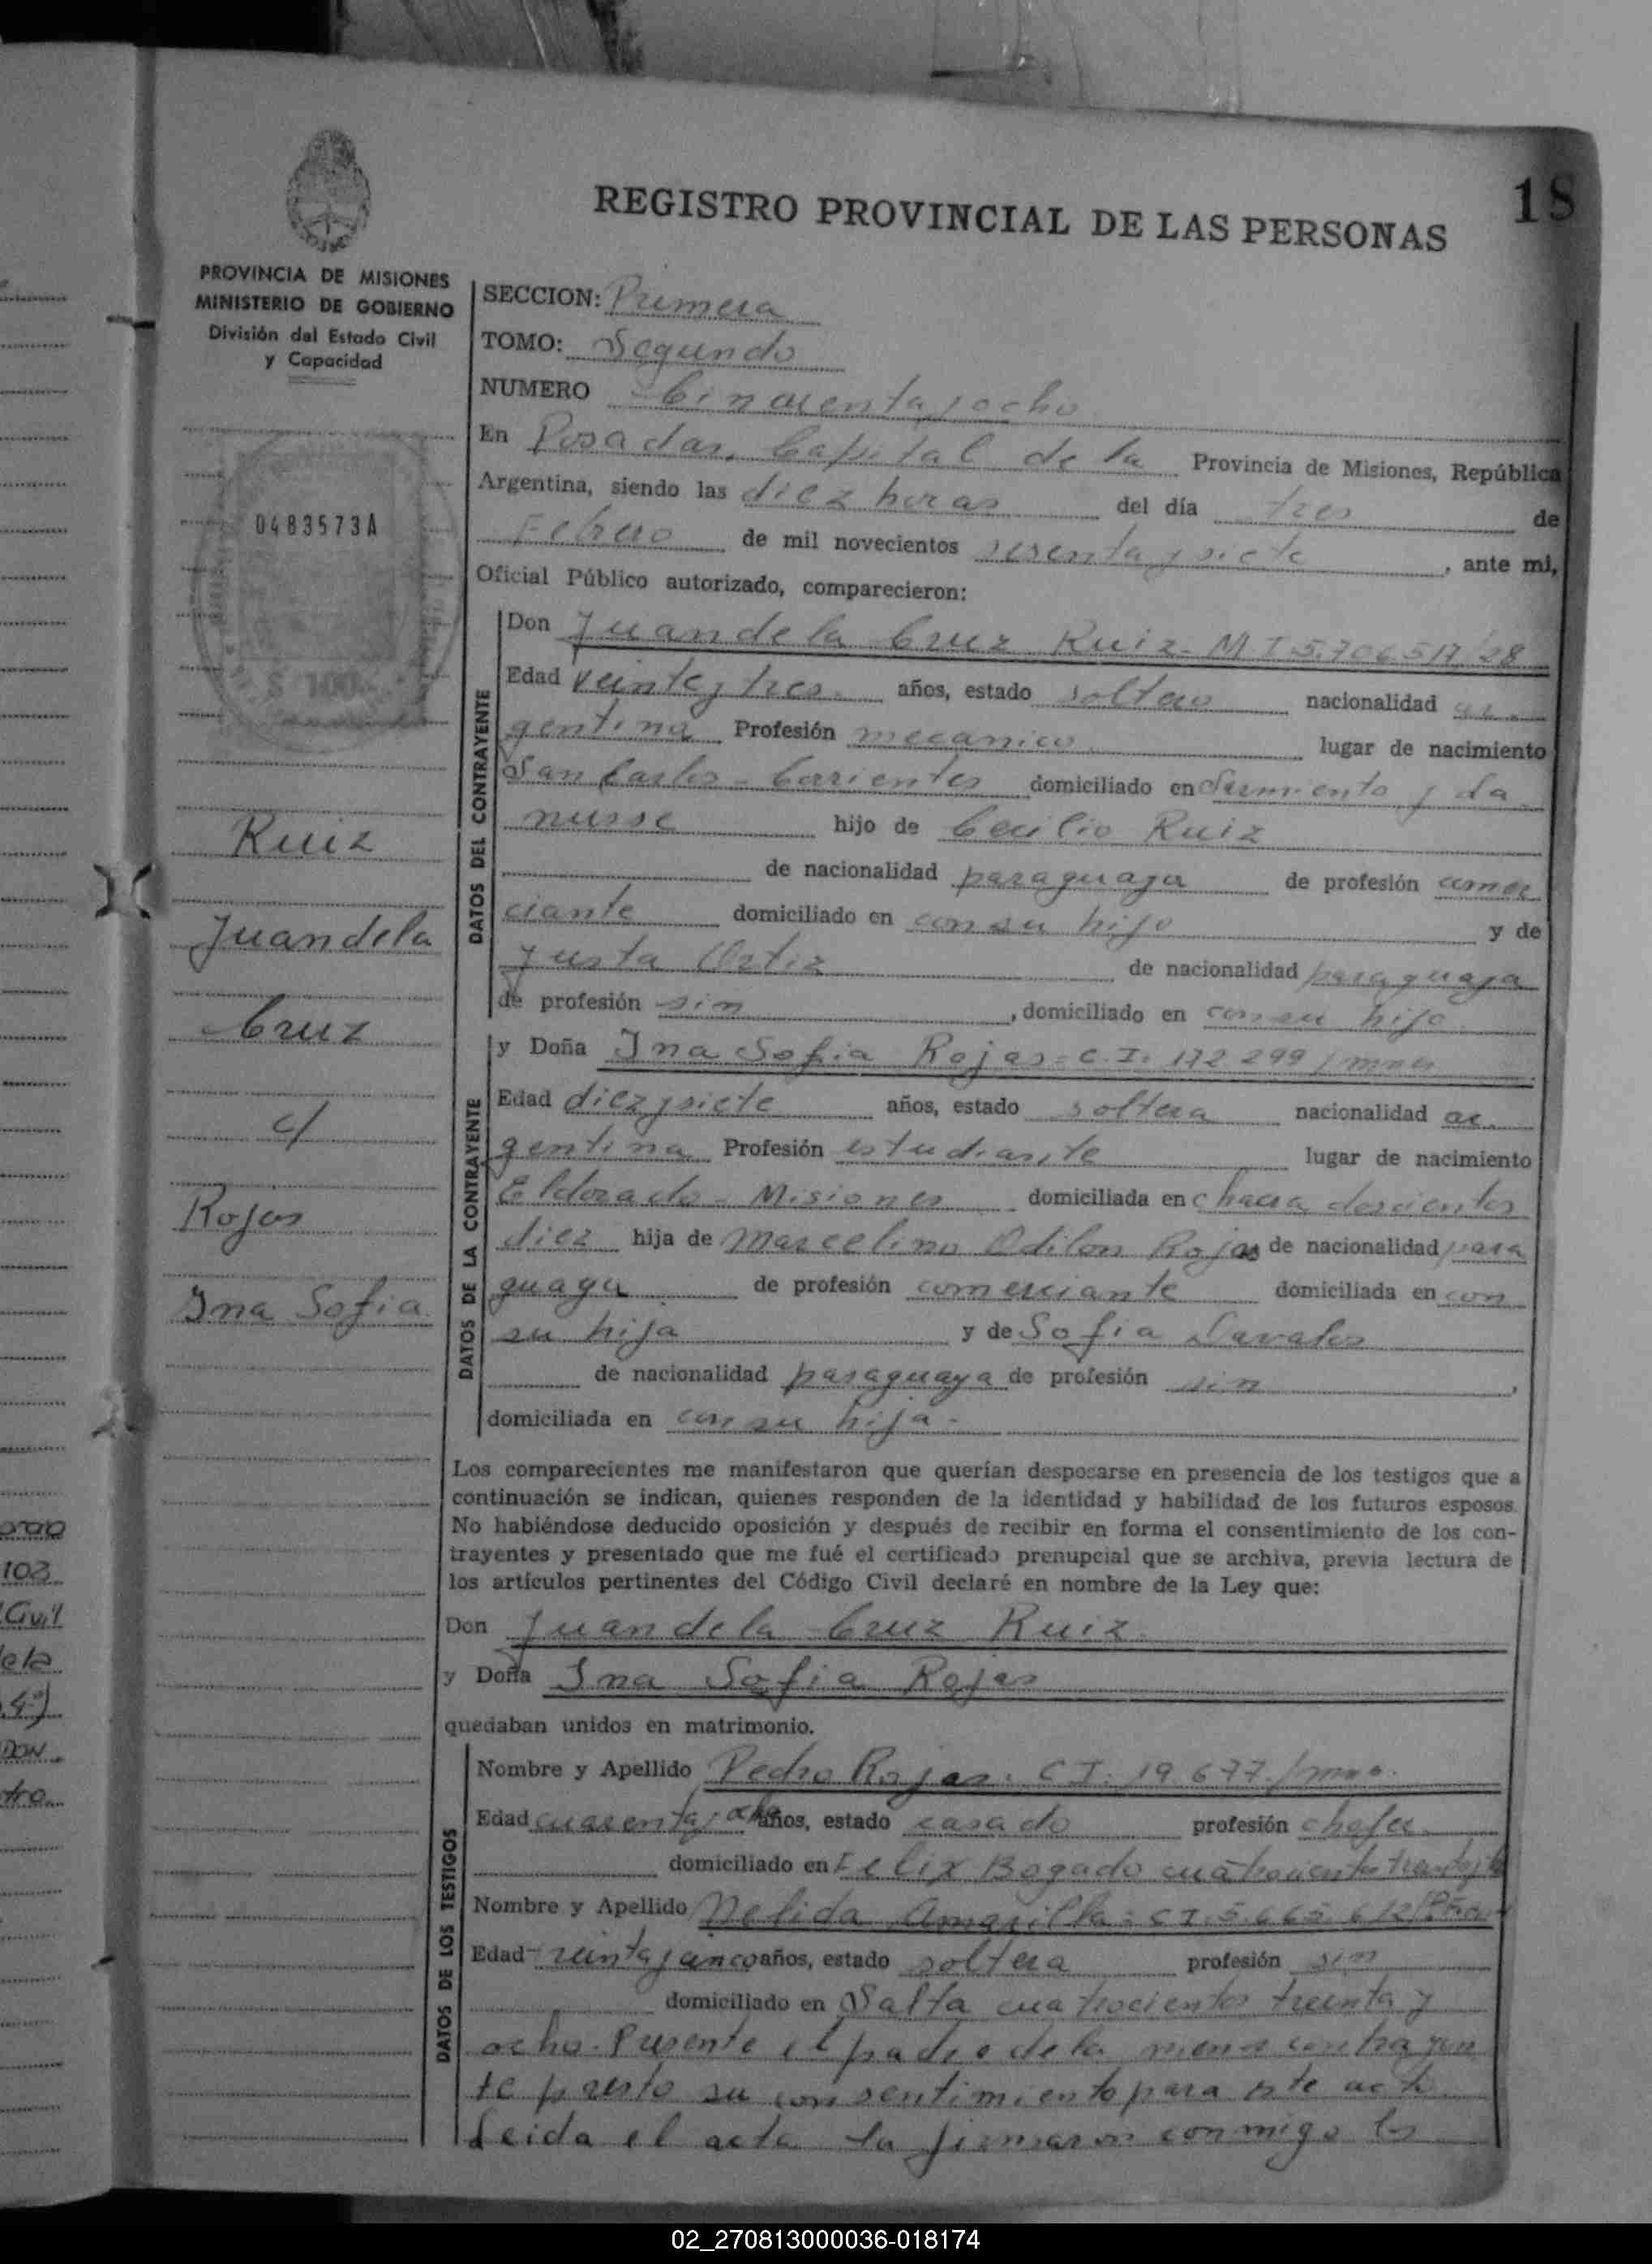 18
REGISTRO PROVINCIAL DE LAS PERSONAS
PROVINCIA DE MISIONES
MINISTERIO DE GOBIERNO
División del Estado Civil
y Capacidad
0483573A
$ 100
Ruiz
Juan de la
Cruz
c/
Rojas
Ina Sofia
SECCION: Primera
TOMO: Segundo
NUMERO Cincuenta y ocho
En Posadas, Capital de la Provincia de Misiones, República
Argentina, siendo las diez horas del día tres de
Febrero de mil novecientos sesenta y siete, ante mi,
Oficial Público autorizado, comparecieron:
DATOS DEL CONTRAYENTE
Don Juan de la Cruz Ruiz - M I 5.706.517/28
Edad veinte y tres años, estado soltero nacionalidad ar-
gentina Profesión mecanico lugar de nacimiento
San Carlos - Corrientes domiciliado en Sarmiento y La-
nusse hijo de Cecilio Ruiz
de nacionalidad paraguaya de profesión comer
ciante domiciliado en con su hijo y de
Justa Ortiz de nacionalidad paraguaya
de profesión sin, domiciliado en con su hijo
DATOS DE LA CONTRAYENTE
y Doña Ina Sofia Rojas - C. I. 172 299/mnes
Edad diez y siete años, estado soltera nacionalidad ar-
gentina Profesión estudiante lugar de nacimiento
Eldorado - Misiones domiciliada en chacra doscientos
diez hija de Marcelino Odilon Rojas de nacionalidad para
guaya de profesión comerciante domiciliada en con
su hija y de Sofia Davalos
de nacionalidad paraguaya de profesión sin,
domiciliada en con su hija.
Los comparecientes me manifestaron que querían desposarse en presencia de los testigos que a
continuación se indican, quienes responden de la identidad y habilidad de los futuros esposos.
No habiéndose deducido oposición y después de recibir en forma el consentimiento de los con-
trayentes y presentado que me fué el certificado prenupcial que se archiva, previa lectura de
los artículos pertinentes del Código Civil declaré en nombre de la Ley que:
Don Juan de la Cruz Ruiz
y Doña Ina Sofia Rojas
quedaban unidos en matrimonio.
DATOS DE LOS TESTIGOS
Nombre y Apellido Pedro Rojas. C I. 19 677/mnes.
Edad cuarenta y ocho años, estado casado profesión chofer
domiciliado en Felix Bogado cuatrocientos
Nombre y Apellido Nelida Amarilla - C I. 5.665.612
Edad treinta y cinco años, estado soltera profesión sin
domiciliado en Salta cuatrocientos treinta y
ocho. Presente el padre de la menor contrayen
te presto su consentimiento para este acto.
Leida el acta la firmaron conmigo los
103
Civil
02_270813000036-018174